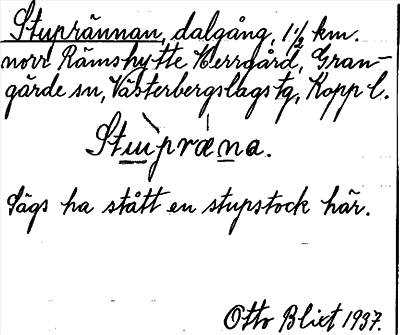 Stuprännan, dalgång, 1½ km.
norr Rämshytte Herrgård, Gran-
gärde sn, Västerbergslags tg, Kopp l.
Stuːpræna.
Sägs ha stått en stupstock här.
Otto Blixt 1937.